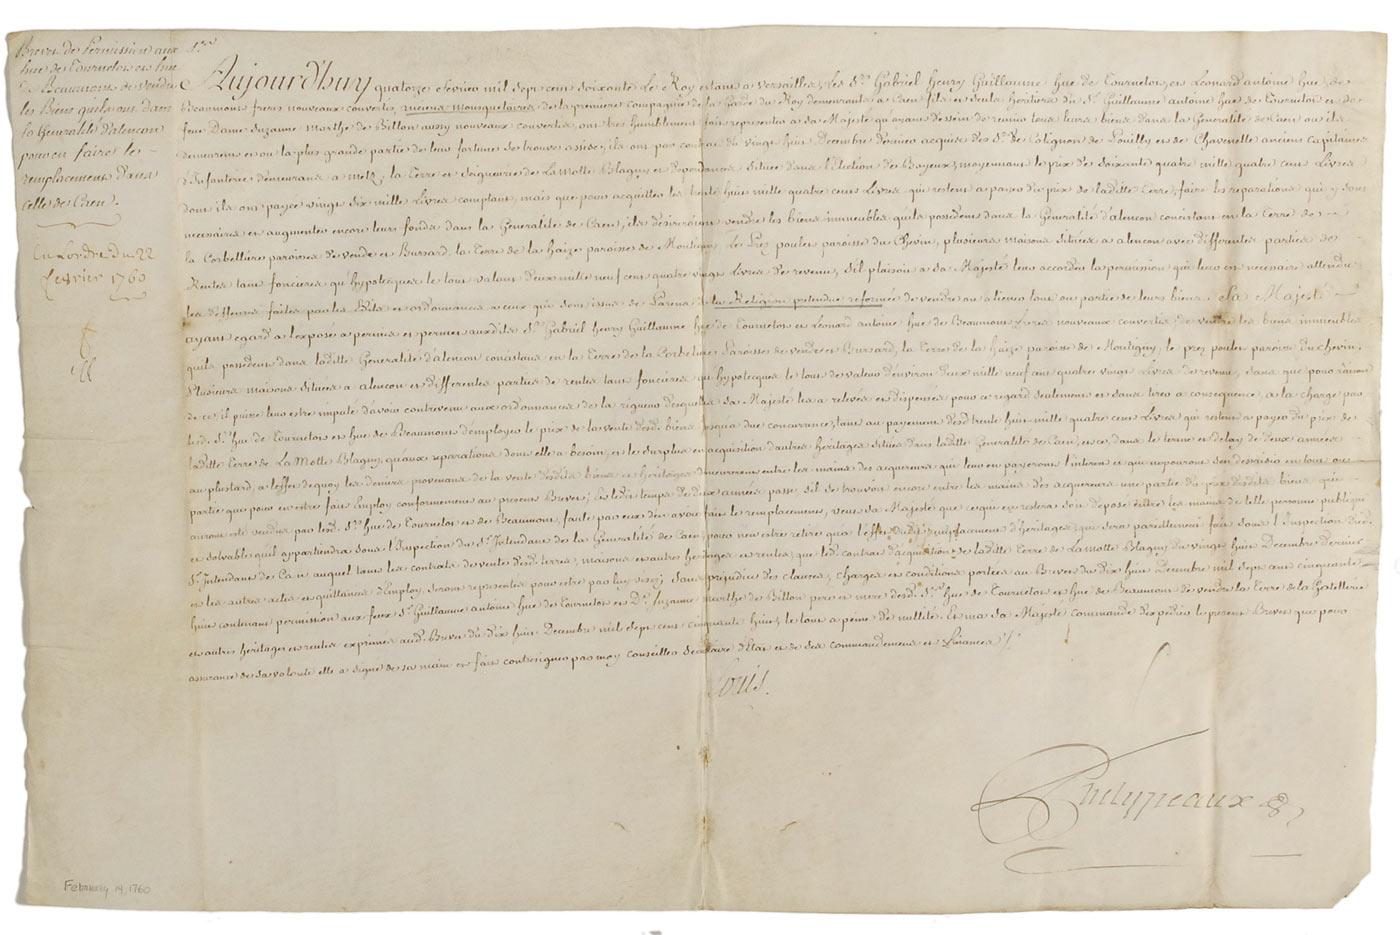 Brevet de Permission aux Srs
hue de Tournetot et hue
de Beaumont de vendre
les Biens quils ont dans
la Généralité d'alencon
pour en faire le
remplacement dans
celle de Caen.
22
fevrier 1760
Aujourd'huy quatorze fevrier mil sept cent soixante Le Roy estant a versailles, les Srs Gabriel henry Guillaume hue de Tournetot, et Leonard antoine hue de
Beaumont freres nouveaux convertis, anciens mousquetaires de la premiere compagnie de la Garde du Roy demeurants a Caen fils et seuls heritiers du Sr Guillaume antoine hue de Tournetot et de
feue Dame Suzanne marthe de Billon aussy nouveaux convertis, ont tres humblement fait representer a Sa Majesté qu'ayant dessein de reunir tous leurs biens dans la Generalité de Caen ou ils
demeurent et ou la plus grande partie de leur fortune se trouve assise, ils ont par contrat du vingt huit Decembre dernier acquis des Srs de Cotignon de Louilly et de Chavenelle anciens capitaines
d'Infanterie demeurans a metz, la Terre et seigneurie de La motte Blagny et dependances située dans l'Election de Bayeux, moyennant le prix de soixante quatre mille quatre cent Livres
dont ils ont payé vingt six mille Livres comptant, mais que pour acquitter les trente huit mille quatre cent Livres qui restent a payer du prix de ladite Terre, faire les reparations qui y sont
necessaires et augmenter encore leurs fonds dans la Generalité de Caen, ils desireroient vendre les biens immeubles qu'ils possedent dans la Généralité d'alencon consistant en la Terre de
la Corbelliere paroisse de vende et Bursard, la Terre de la haize paroisse de Moutigny, le Prez poulen paroisse du Chevin, plusieurs maisons situées a alencon avec differentes parties de
Rentes tant foncieres qu'hypotecques le tout valant deux mille neuf cent quatre vingt Livres de revenu, s'il plaisoit a Sa Majesté leur accorder la permission qui leur est necessaire attendu
les deffenses faites par les Edits et ordonnances a ceux qui sont issus de Parens de la Religion pretendue reformée de vendre ou aliener tout ou partie de leurs biens. Sa Majesté
ayant egard a l'exposé a permis et permet auxdits Srs Gabriel henry Guillaume hue de Tournetot et Léonard antoine hue de Beaumont freres nouveaux convertis, de vendre les biens immeubles
quils possedent dans ladite Generalité d'alencon consistans en la Terre de la Corbeliere Paroisses de vende et Bursard, la Terre de la haize paroisse de Moutigny, le prez poulen paroisse du Chevin,
Plusieurs maisons situées a alencon et differentes parties de rentes tant foncieres qu'hypotecques le tout de valeur d'environ deux mille neuf cent quatre vingt Livres de revenu, sans que pour raison
de ce, il puisse leur estre imputé d'avoir contrevenu aux ordonnances de la rigueur desquelles Sa Majesté les a relevés et dispensés pour ce regard seulement et sans tirer a consequence, a la charge par
lesd. Srs hue de Tournetot et hue de Beaumont d'employer le prix de la vente desd. biens jusqu'a due concurrence, tant au payement des trente huit mille quatre cent Livres qui restent a payer du prix de
ladite Terre de La Motte Blagny, qu'aux reparations dont elle a besoin, et le surplus en acquisition d'autres heritages situés dans ladite Généralité de Caen, et ce, dans le terme et delay de deux années
au plustard, a l'effet de quoy les deniers provenans de la vente desdits biens et heritages demeureront entre les mains des acquereurs qui leur en payeront l'interest et qui ne pouront s'en desaisir en tout ou
partie que pour en estre fait Employ conformement au present Brevet; Et ledit temps de deux années passé, s'il se trouvoit encore entre les mains des acquereurs une partie du prix desdits biens qui
auront esté vendus par lesd. Srs hue de Tournetot et de Beaumont, faute par eux d'en avoir fait le remplacement, veut Sa Majesté que ce qui en restera soit déposé entre les mains de telle personne publique
et solvable qu'il appartiendra sous l'Inspection du Sr Intendant de la Généralité de Caen, pour n'en estre retiré qu'a l'effet dudit remplacement d'heritages, qui sera pareillement fait sous l'Inspection dud.
Sr Intendant de Caen auquel tant les contrats de vente desd. terres, maisons et autres heritages et rentes, que led. contrat d'acquisition de ladite Terre de La motte Blagny du vingt huit Decembre dernier
et les autres actes et quittances d'Employ, seront representés pour estre par luy visez; Sans préjudice des clauses, charges et conditions portées au Brevet du dix huit Decembre mil sept cent cinquante
huit contenant permission aux feux Sr Guillaume antoine hue de Tournetot et De Suzanne marthe de Billon pere et mere desd. Srs hue de Tournetot et hue de Beaumont de vendre la Terre de la
et autres heritages et rentes exprimés aud. Brevet du dix huit Decembre mil sept cent cinquante huit, le tout a peine de nullité. Et m'a Sa Majesté commandé d'expedier le present Brevet que pour
assurance de sa volonté elle a signé de sa main et fait contresigner par moy Conseiller Secretaire d'Etat et de ses commandemens et finances
Louis.
Phelypeaux
February 14, 1760